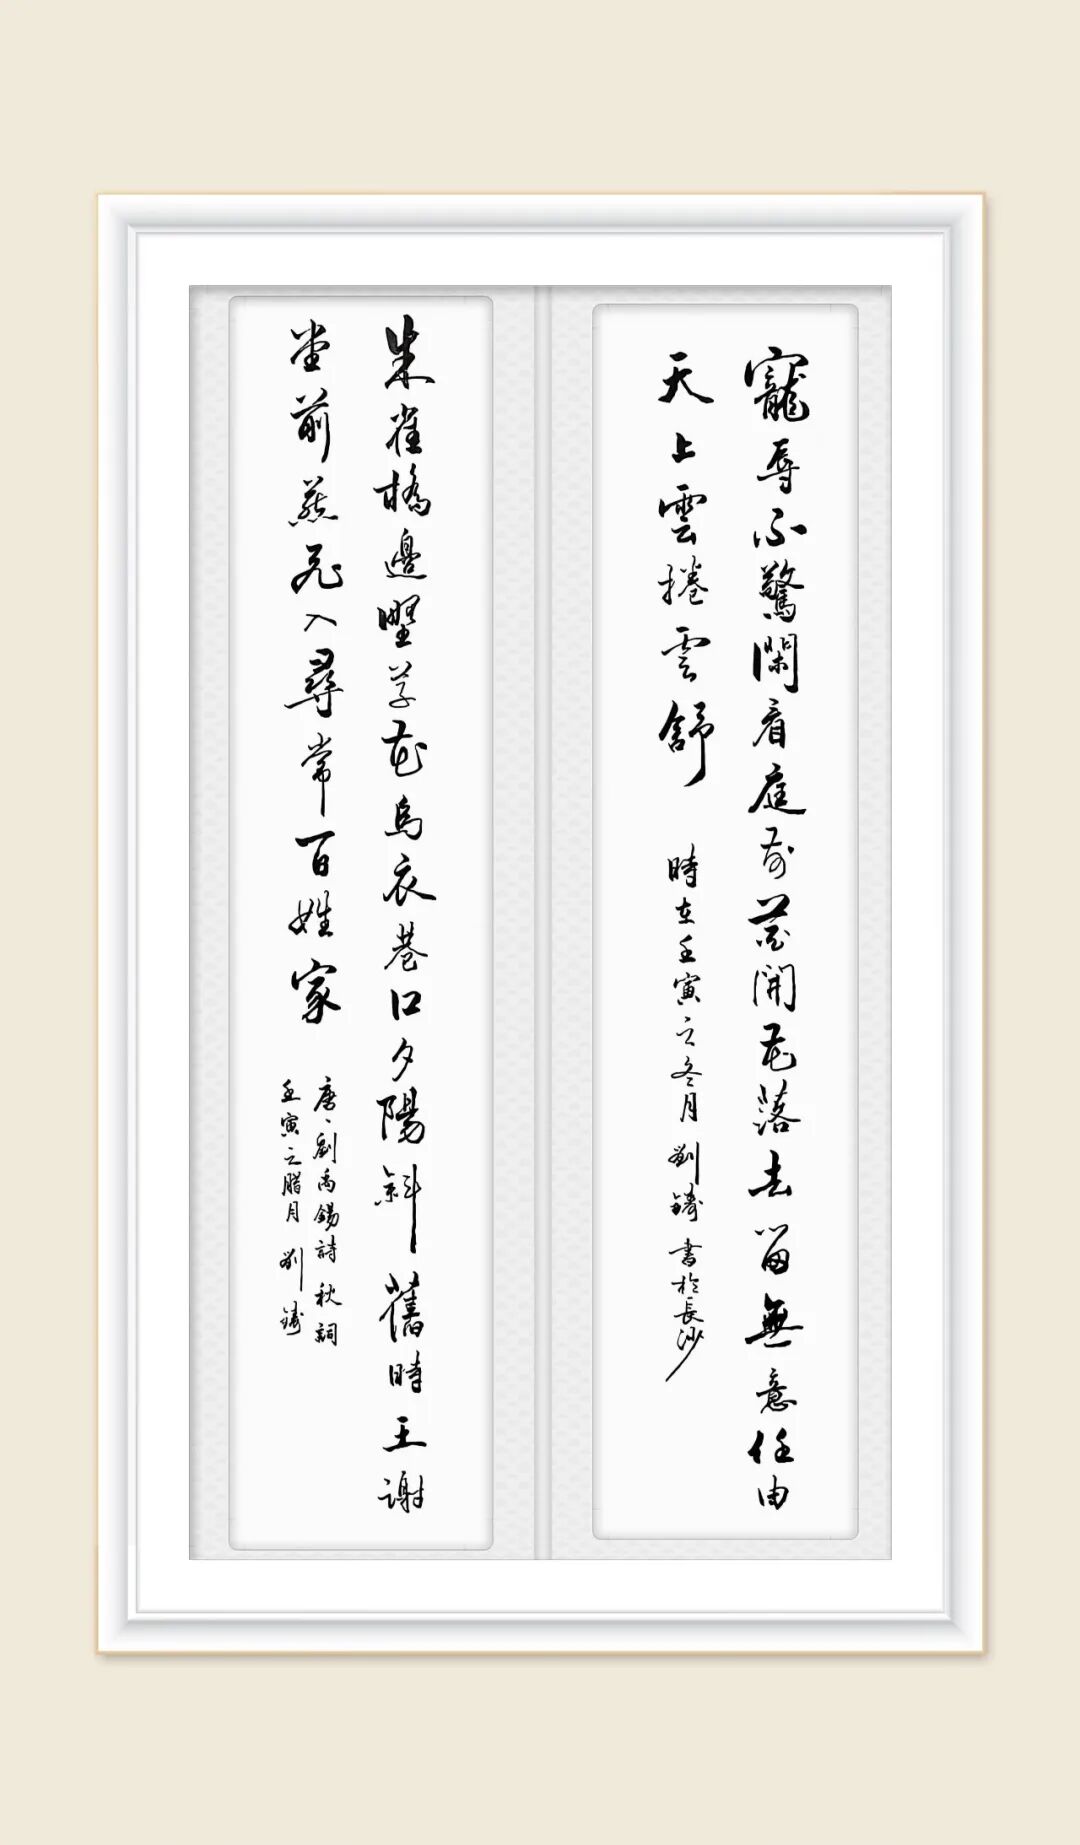 寵辱不驚閑看庭前花開花落去留無意任由
天上雲捲雲舒
時在壬寅之冬月劉鑄書於長沙
朱雀橋邊野草花烏衣巷口夕陽斜舊時王謝
堂前燕飛入尋常百姓家
唐、劉禹錫詩秋詞
壬寅之腊月劉鑄